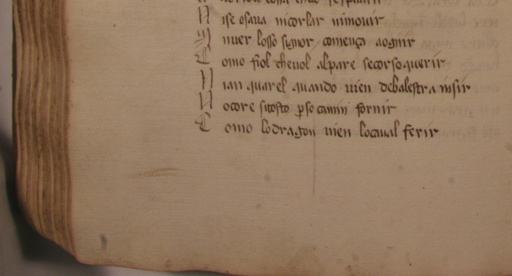 N ise osaua nicorlar nimouir
M uer losso signor comença aognir
C omo fiol cheuol alpare secorso querir
N ian quarel quando uien debalestra insir
N ocore sitosto p so camin fornir
C omo lodragon uien locaual ferir